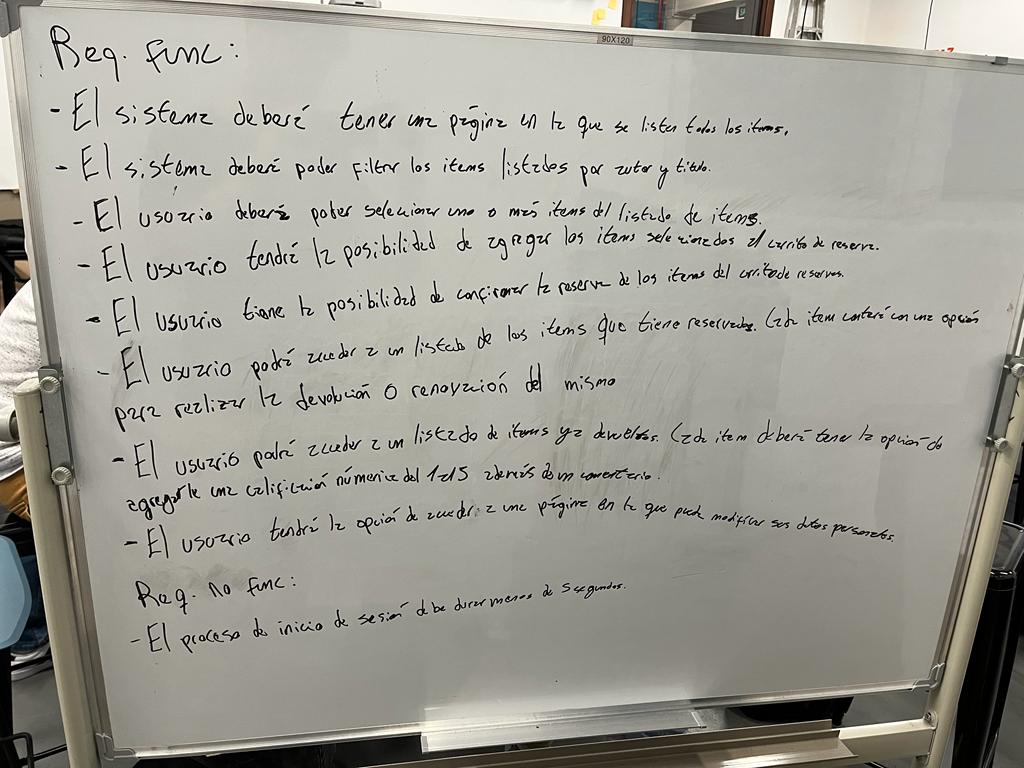 90X120
Req. func:
- El sistema deberá tener una página en la que se listen todos los items.
- El sistema deberá poder filtrar los items listados por autor y titulo.
- El usuario deberá poder seleccionar uno o más items del listado de items.
- El usuario tendrá la posibilidad de agregar los items seleccionados al carrito de reserva.
- El usuario tiene la posibilidad de confirmar la reserva de los items del carrito de reservas.
- El usuario podrá acceder a un listado de los items que tiene reservados. Cada item contará con una opción
para realizar la devolución o renovación del mismo
- El usuario podrá acceder a un listado de items ya devueltos. Cada item deberá tener la opción de
agregarle una calificación númerica del 1 al 5 además de un comentario.
- El usuario tendrá la opción de acceder a una página en la que puede modificar sus datos personales.
Req. no func:
- El proceso de inicio de sesión debe durar menos de 5 segundos.